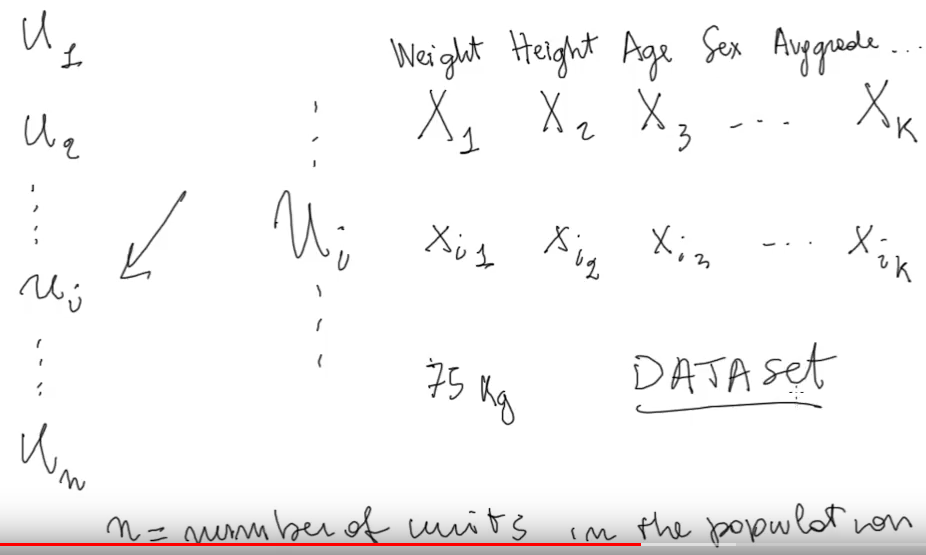 u1
Weight Height Age Sex Avggrade ...
X1 X2 X3 ... XK
u2
ui
Ui xi1 xi2 xi3 ... xiK
75 kg
DATASet
un
n = number of units in the population